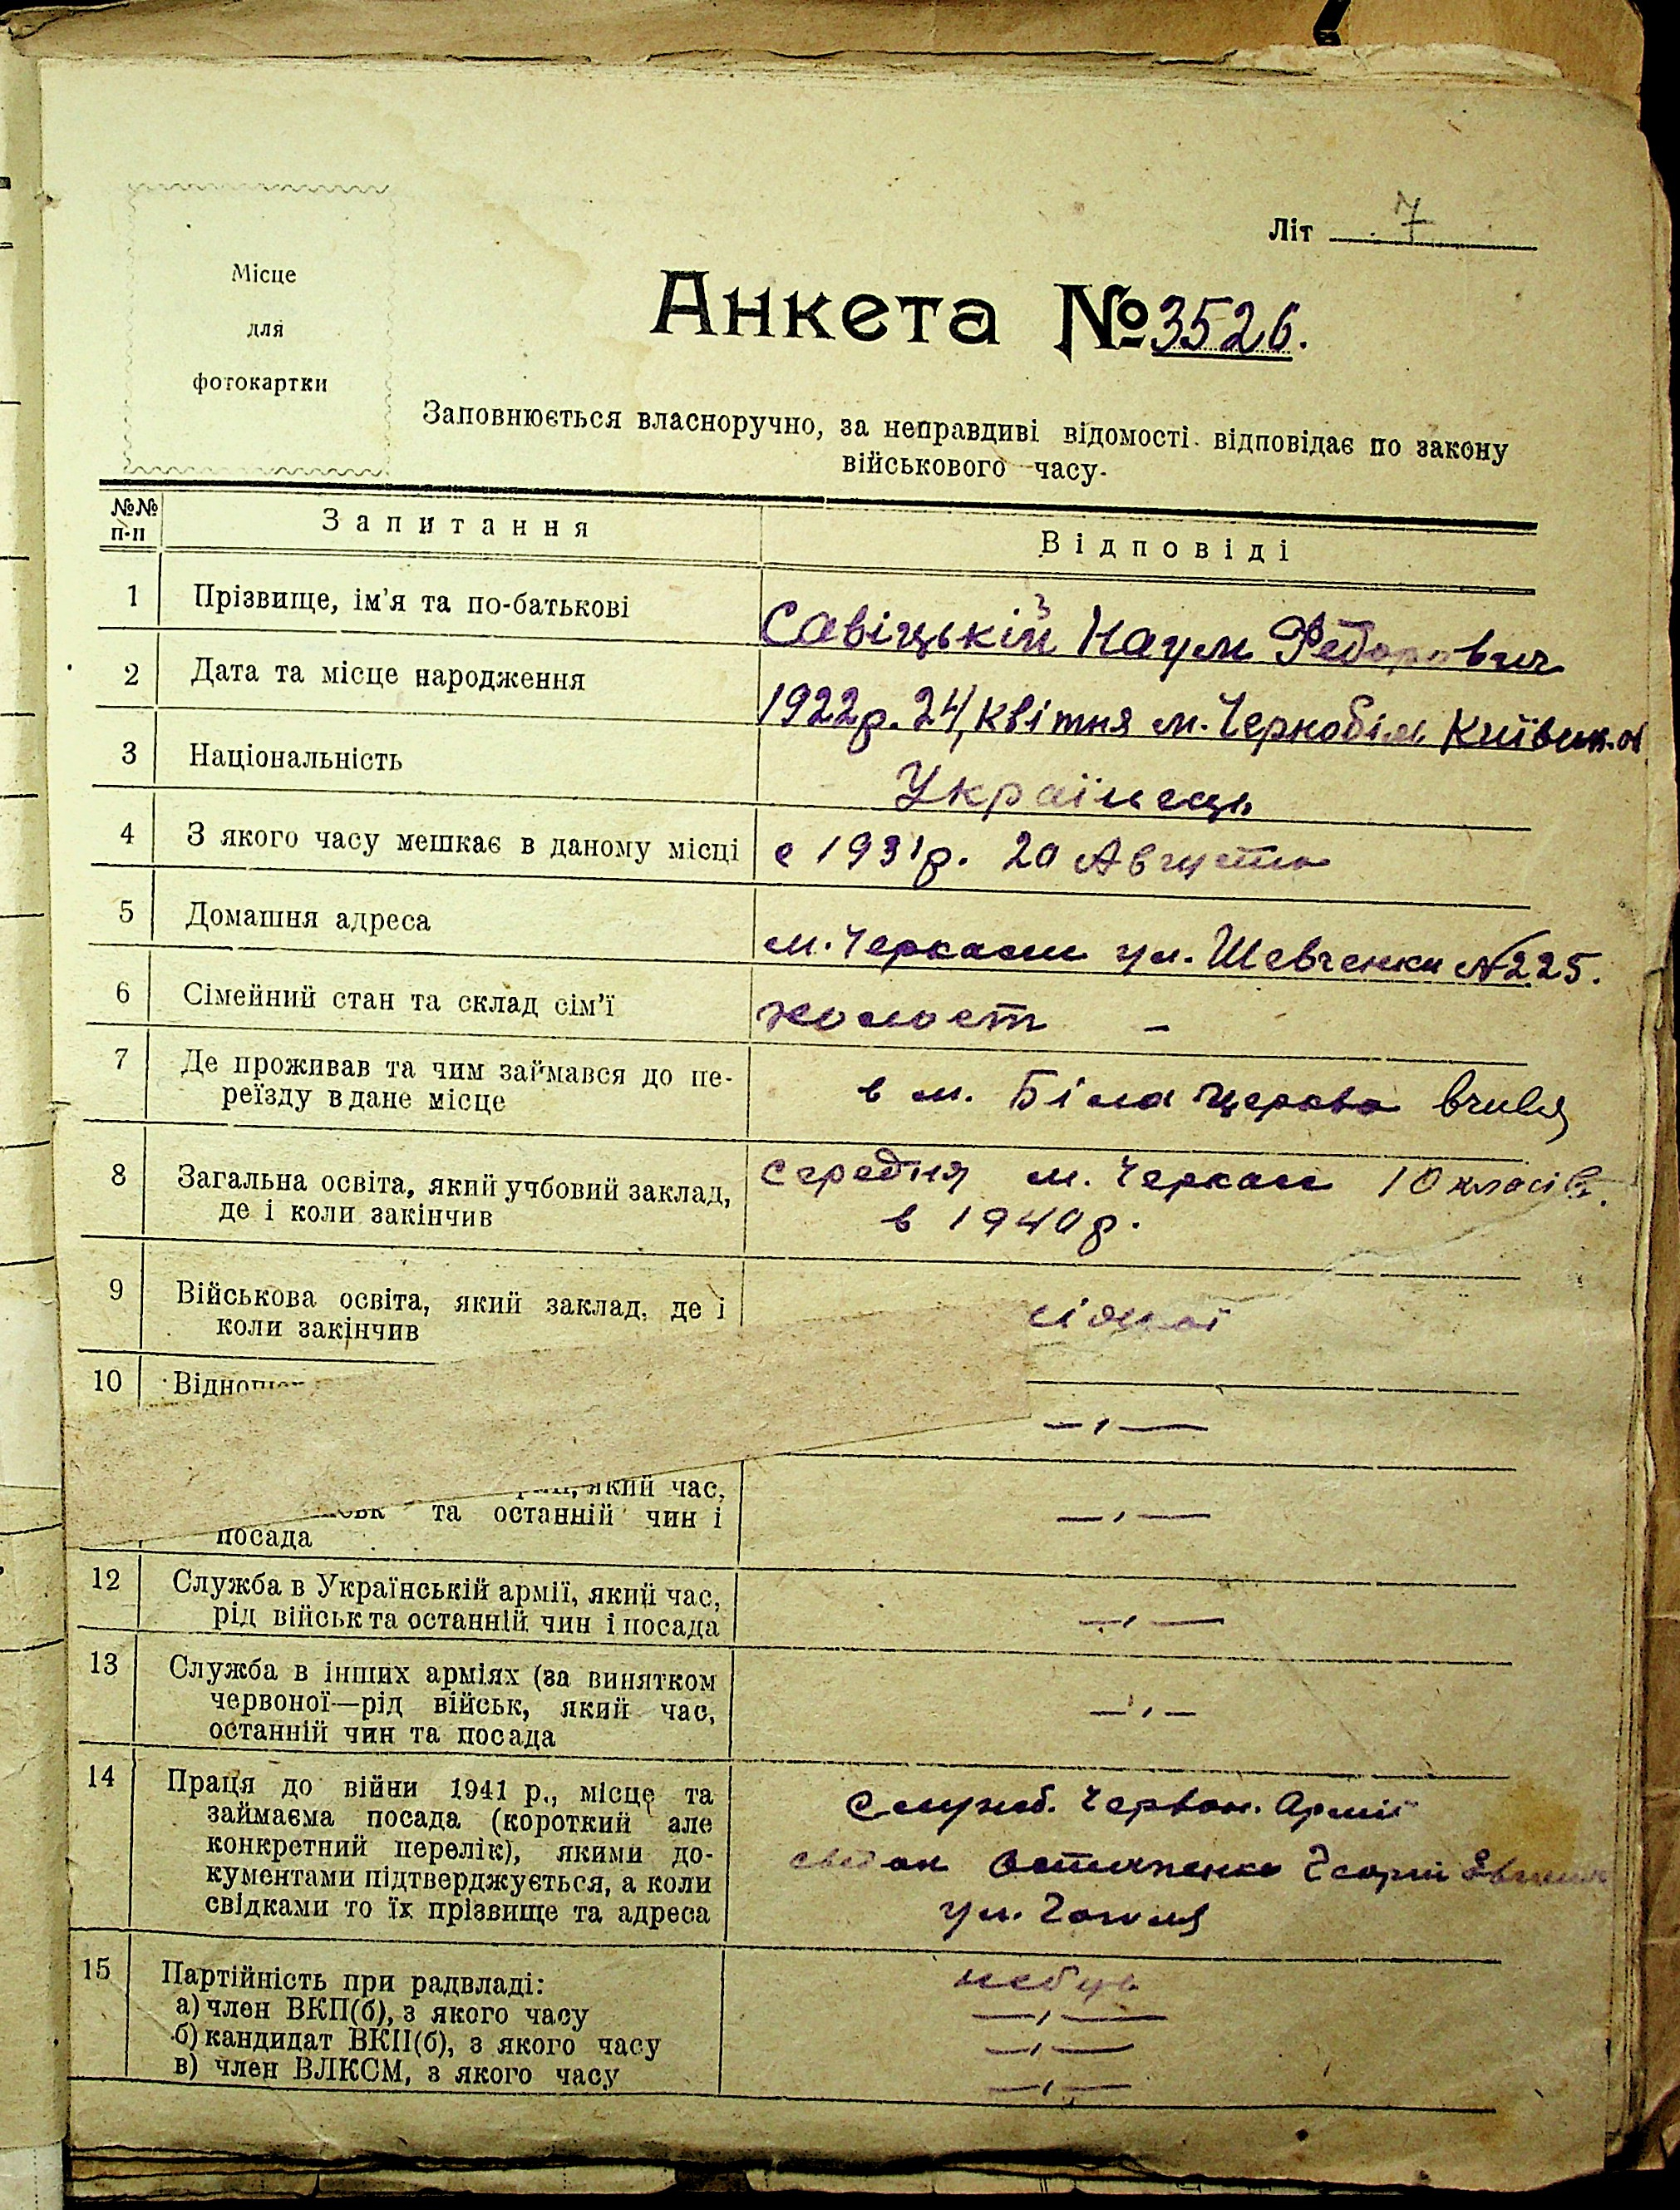 Літ 7
Місце
для
фотокартки
Анкета № 3526.
Заповнюється власноручно, за неправдиві відомості відповідає по закону
військового часу.
№№
п-п
Запитання
Відповіді
1 Прізвище, ім'я та по-батькові
Савіцькій Наум Федорович
2 Дата та місце народження
1922р. 24/квітня м. Чернобіль Київськ. об
3 Національність
Українець
4 З якого часу мешкає в даному місці
с 1931р. 20 Августа
5 Домашня адреса
м. Черкаси ул. Шевченки №225.
6 Сімейний стан та склад сім'ї
холост –
7 Де проживав та чим займався до пе-
реїзду в дане місце
в м. Біла церква вчився
8 Загальна освіта, який учбовий заклад,
де і коли закінчив
середня м. Черкаси 10 класів.
в 1940р.
9 Військова освіта, який заклад, де і
коли закінчив
10
— ‚ —
який час,
та останній чин і
посада
— ‚ —
12 Служба в Українській армії, який час,
рід військ та останній чин і посада
— ‚ —
13 Служба в інших арміях (за винятком
червоної—рід військ, який час,
останній чин та посада
— ‚ —
14 Праця до війни 1941 р., місце та
займаєма посада (короткий але
конкретний перелік), якими до-
кументами підтверджується, а коли
свідками то їх прізвище та адреса
Служб. Червон. Армії
Георгій
ул. Гоголя
15 Партійність при радвладі:
а) член ВКП(б), з якого часу
б) кандидат ВКП(б), з якого часу
в) член ВЛКСМ, з якого часу
небув
— ‚ —
— ‚ —
— ‚ —